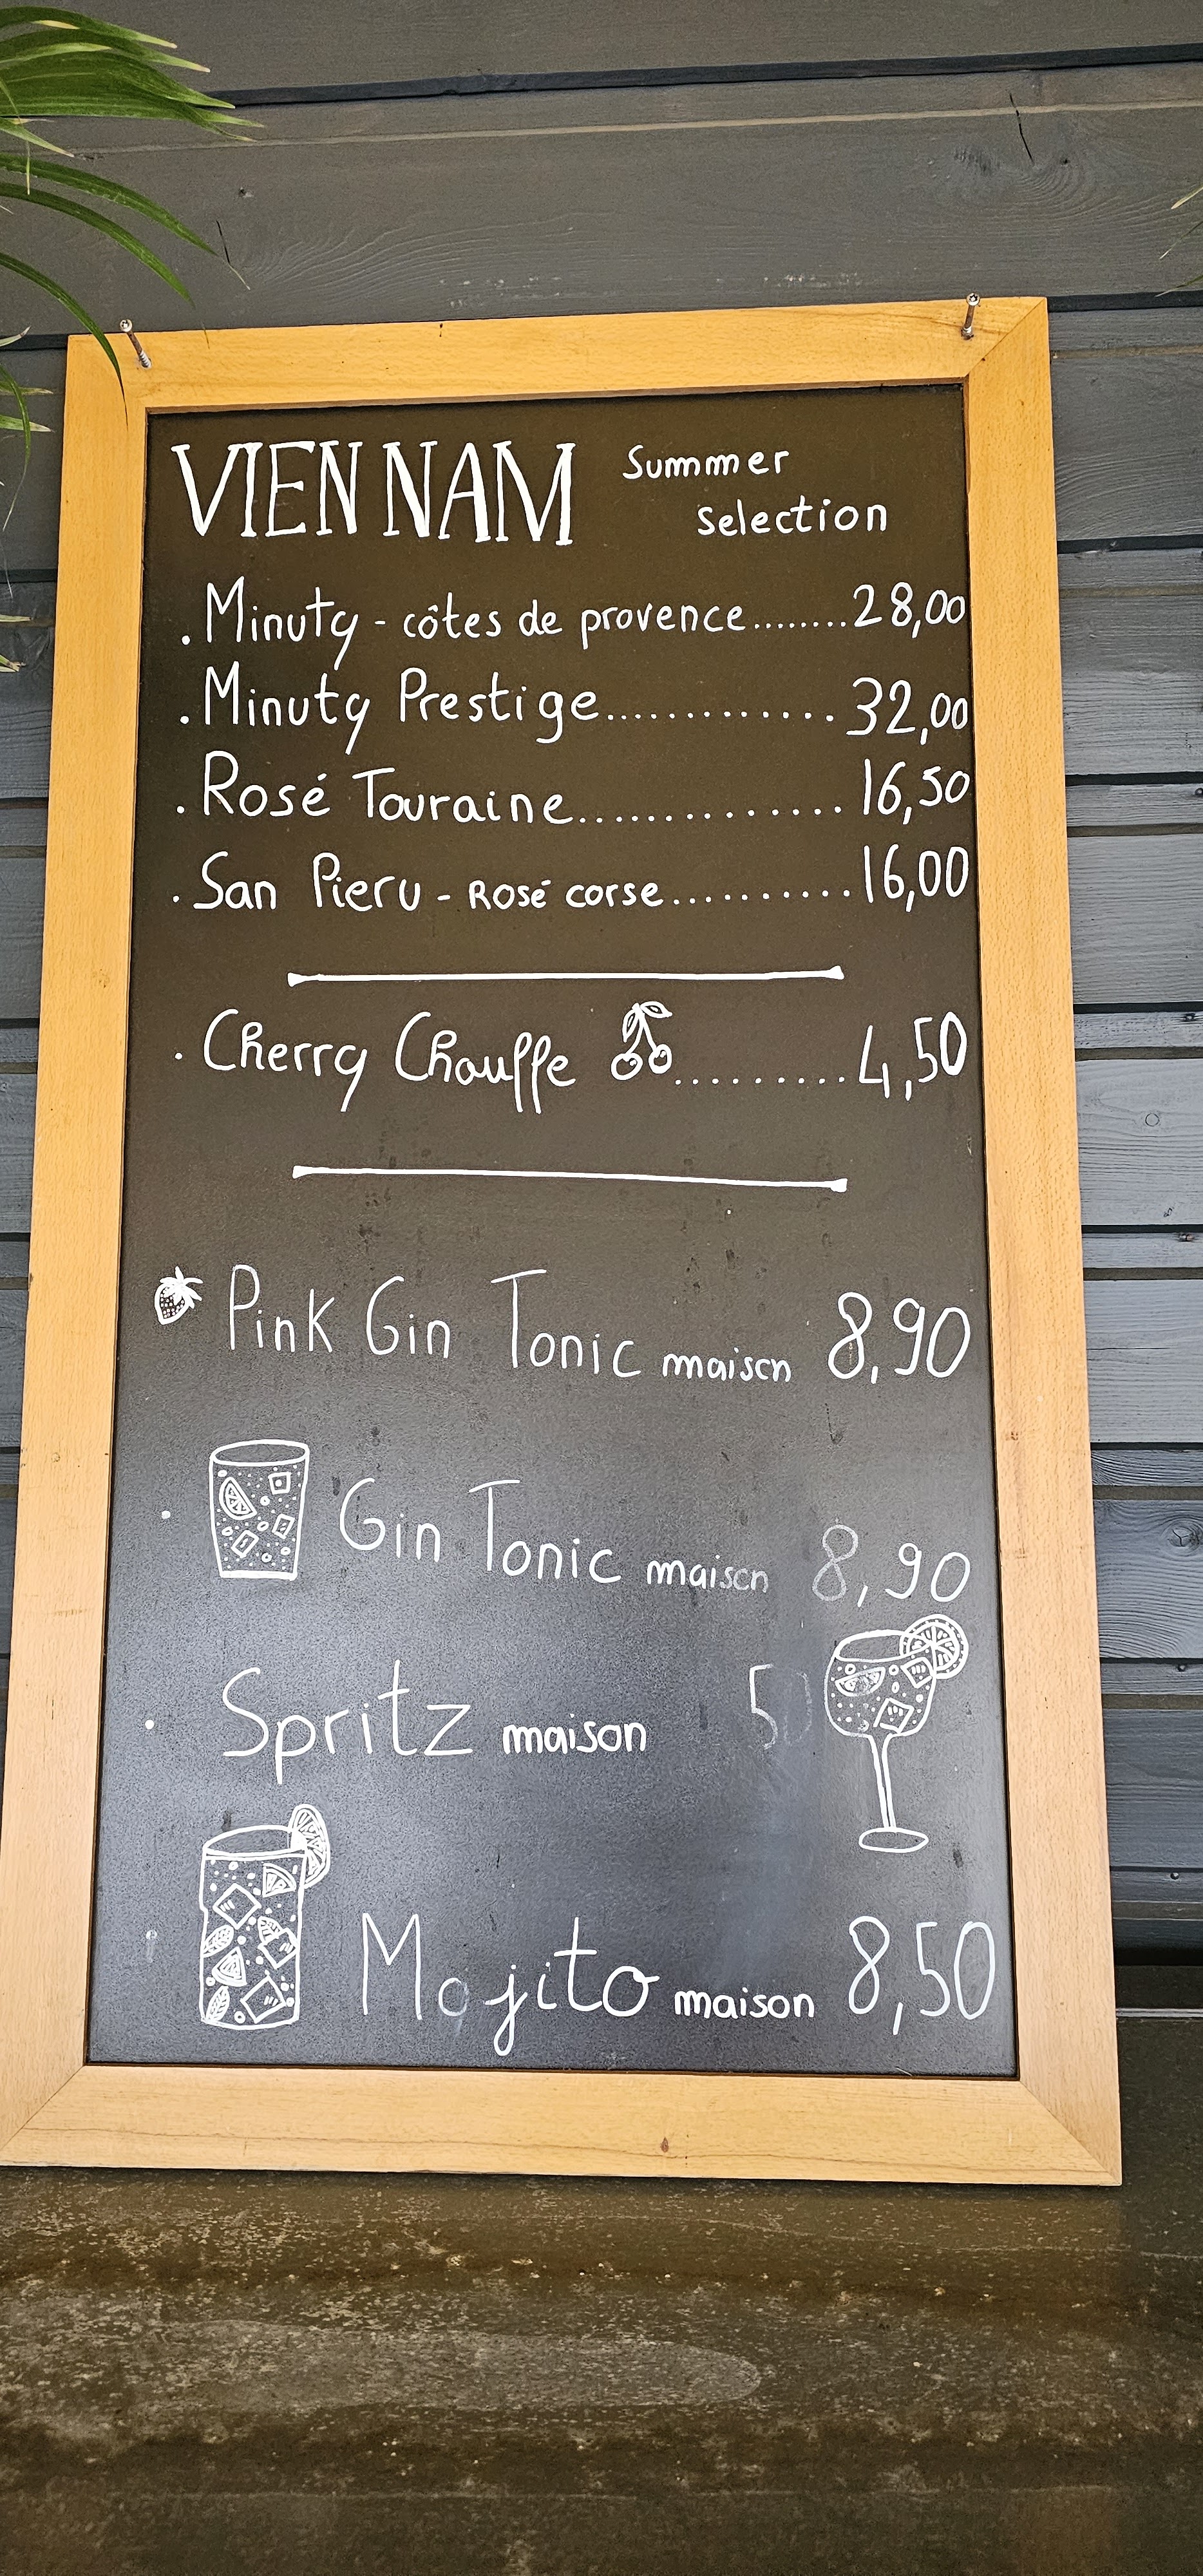 VIEN NAM Summer
selection
. Minuty - côtes de provence........28,00
. Minuty Prestige............. 32,00
. Rosé Touraine.............. 16,50
. San Pieru - Rosé corse..........16,00
. Cherry Chouffe .........4,50
Pink Gin Tonic maison 8,90
. Gin Tonic maison 8,90
. Spritz maison 50
. Mojito maison 8,50